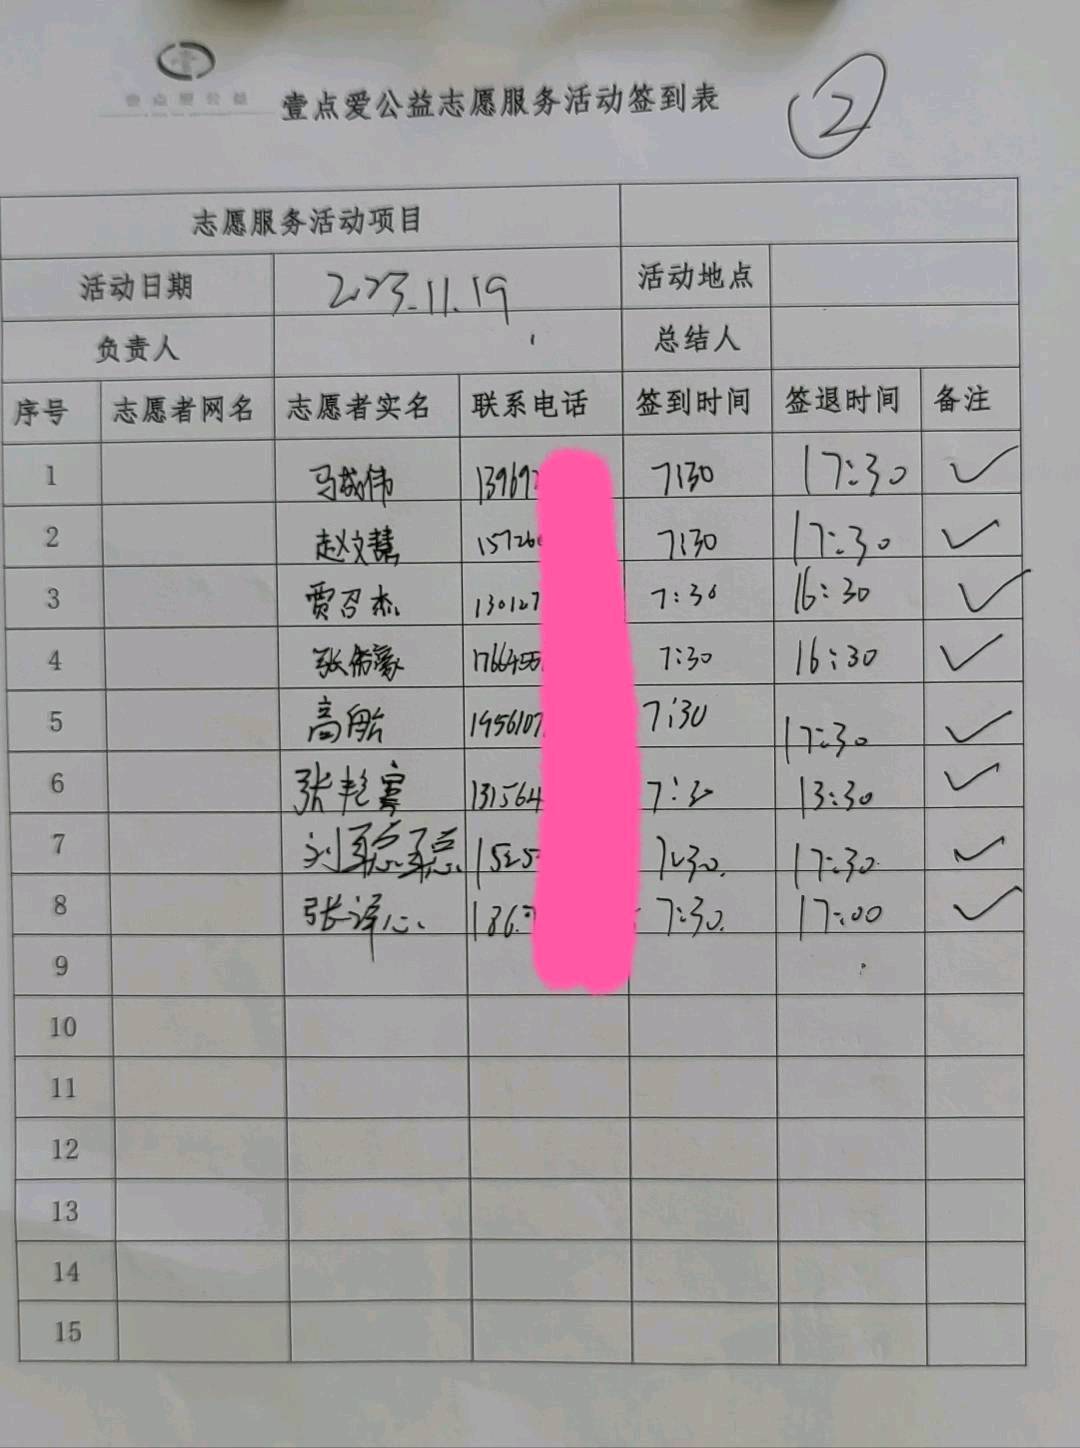 壹点爱公益
壹点爱公益志愿服务活动签到表
②
志愿服务活动项目
活动日期 2023.11.19 活动地点
负责人 总结人
序号 志愿者网名 志愿者实名 联系电话 签到时间 签退时间 备注
1 马成伟 13969 7:30 17:30 ✓
2 赵文慧 15726 7:30 17:30 ✓
3 贾召杰 130127 7:30 16:30 ✓
4 张 豪 1766455 7:30 16:30 ✓
5 高 1956107 7:30 17:30 ✓
6 张艳 131564 7:30 13:30 ✓
7 刘聪聪 1525 7:30. 17:30. ✓
8 张译心 186 7:30. 17:00 ✓
9
10
11
12
13
14
15